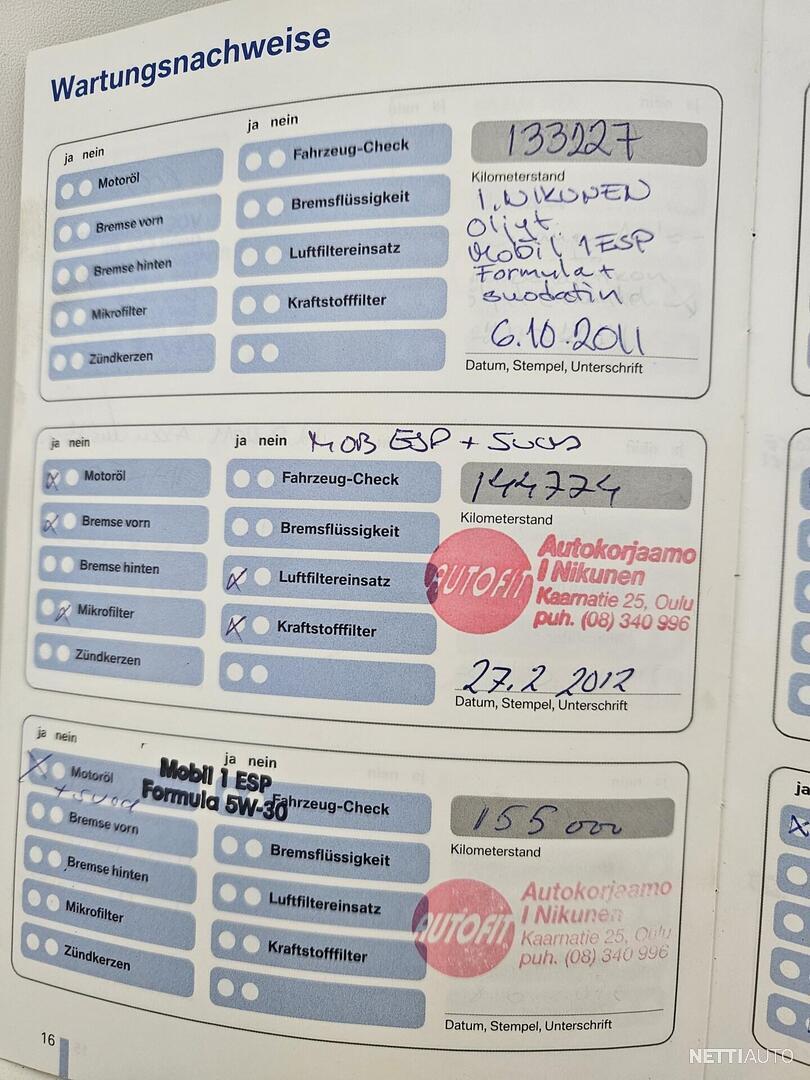 Wartungsnachweise
ja nein
ja nein
Motoröl
Bremse vorn
Bremse hinten
Mikrofilter
Zündkerzen
Fahrzeug-Check
Bremsflüssigkeit
Luftfiltereinsatz
Kraftstofffilter
133227
Kilometerstand
I. NIKUNEN
Öljyt
Mobil 1 ESP
Formula +
suodatin
6.10.2011
Datum, Stempel, Unterschrift
ja nein
ja nein
MOB ESP + Suod
x Motoröl
x Bremse vorn
Bremse hinten
x Mikrofilter
Zündkerzen
Fahrzeug-Check
Bremsflüssigkeit
x Luftfiltereinsatz
x Kraftstofffilter
144774
Kilometerstand
AUTOFIT
Autokorjaamo
I Nikunen
Kaarnatie 25, Oulu
puh. (08) 340 996
27.2 2012
Datum, Stempel, Unterschrift
ja nein
ja nein
x Motoröl
+ suod
Bremse vorn
Bremse hinten
Mikrofilter
Zündkerzen
Mobil 1 ESP
Formula 5W-30
Fahrzeug-Check
Bremsflüssigkeit
Luftfiltereinsatz
Kraftstofffilter
155 000
Kilometerstand
AUTOFIT
Autokorjaamo
I Nikunen
Kaarnatie 25, Oulu
puh. (08) 340 996
Datum, Stempel, Unterschrift
16
ja
x
NETTIAUTO